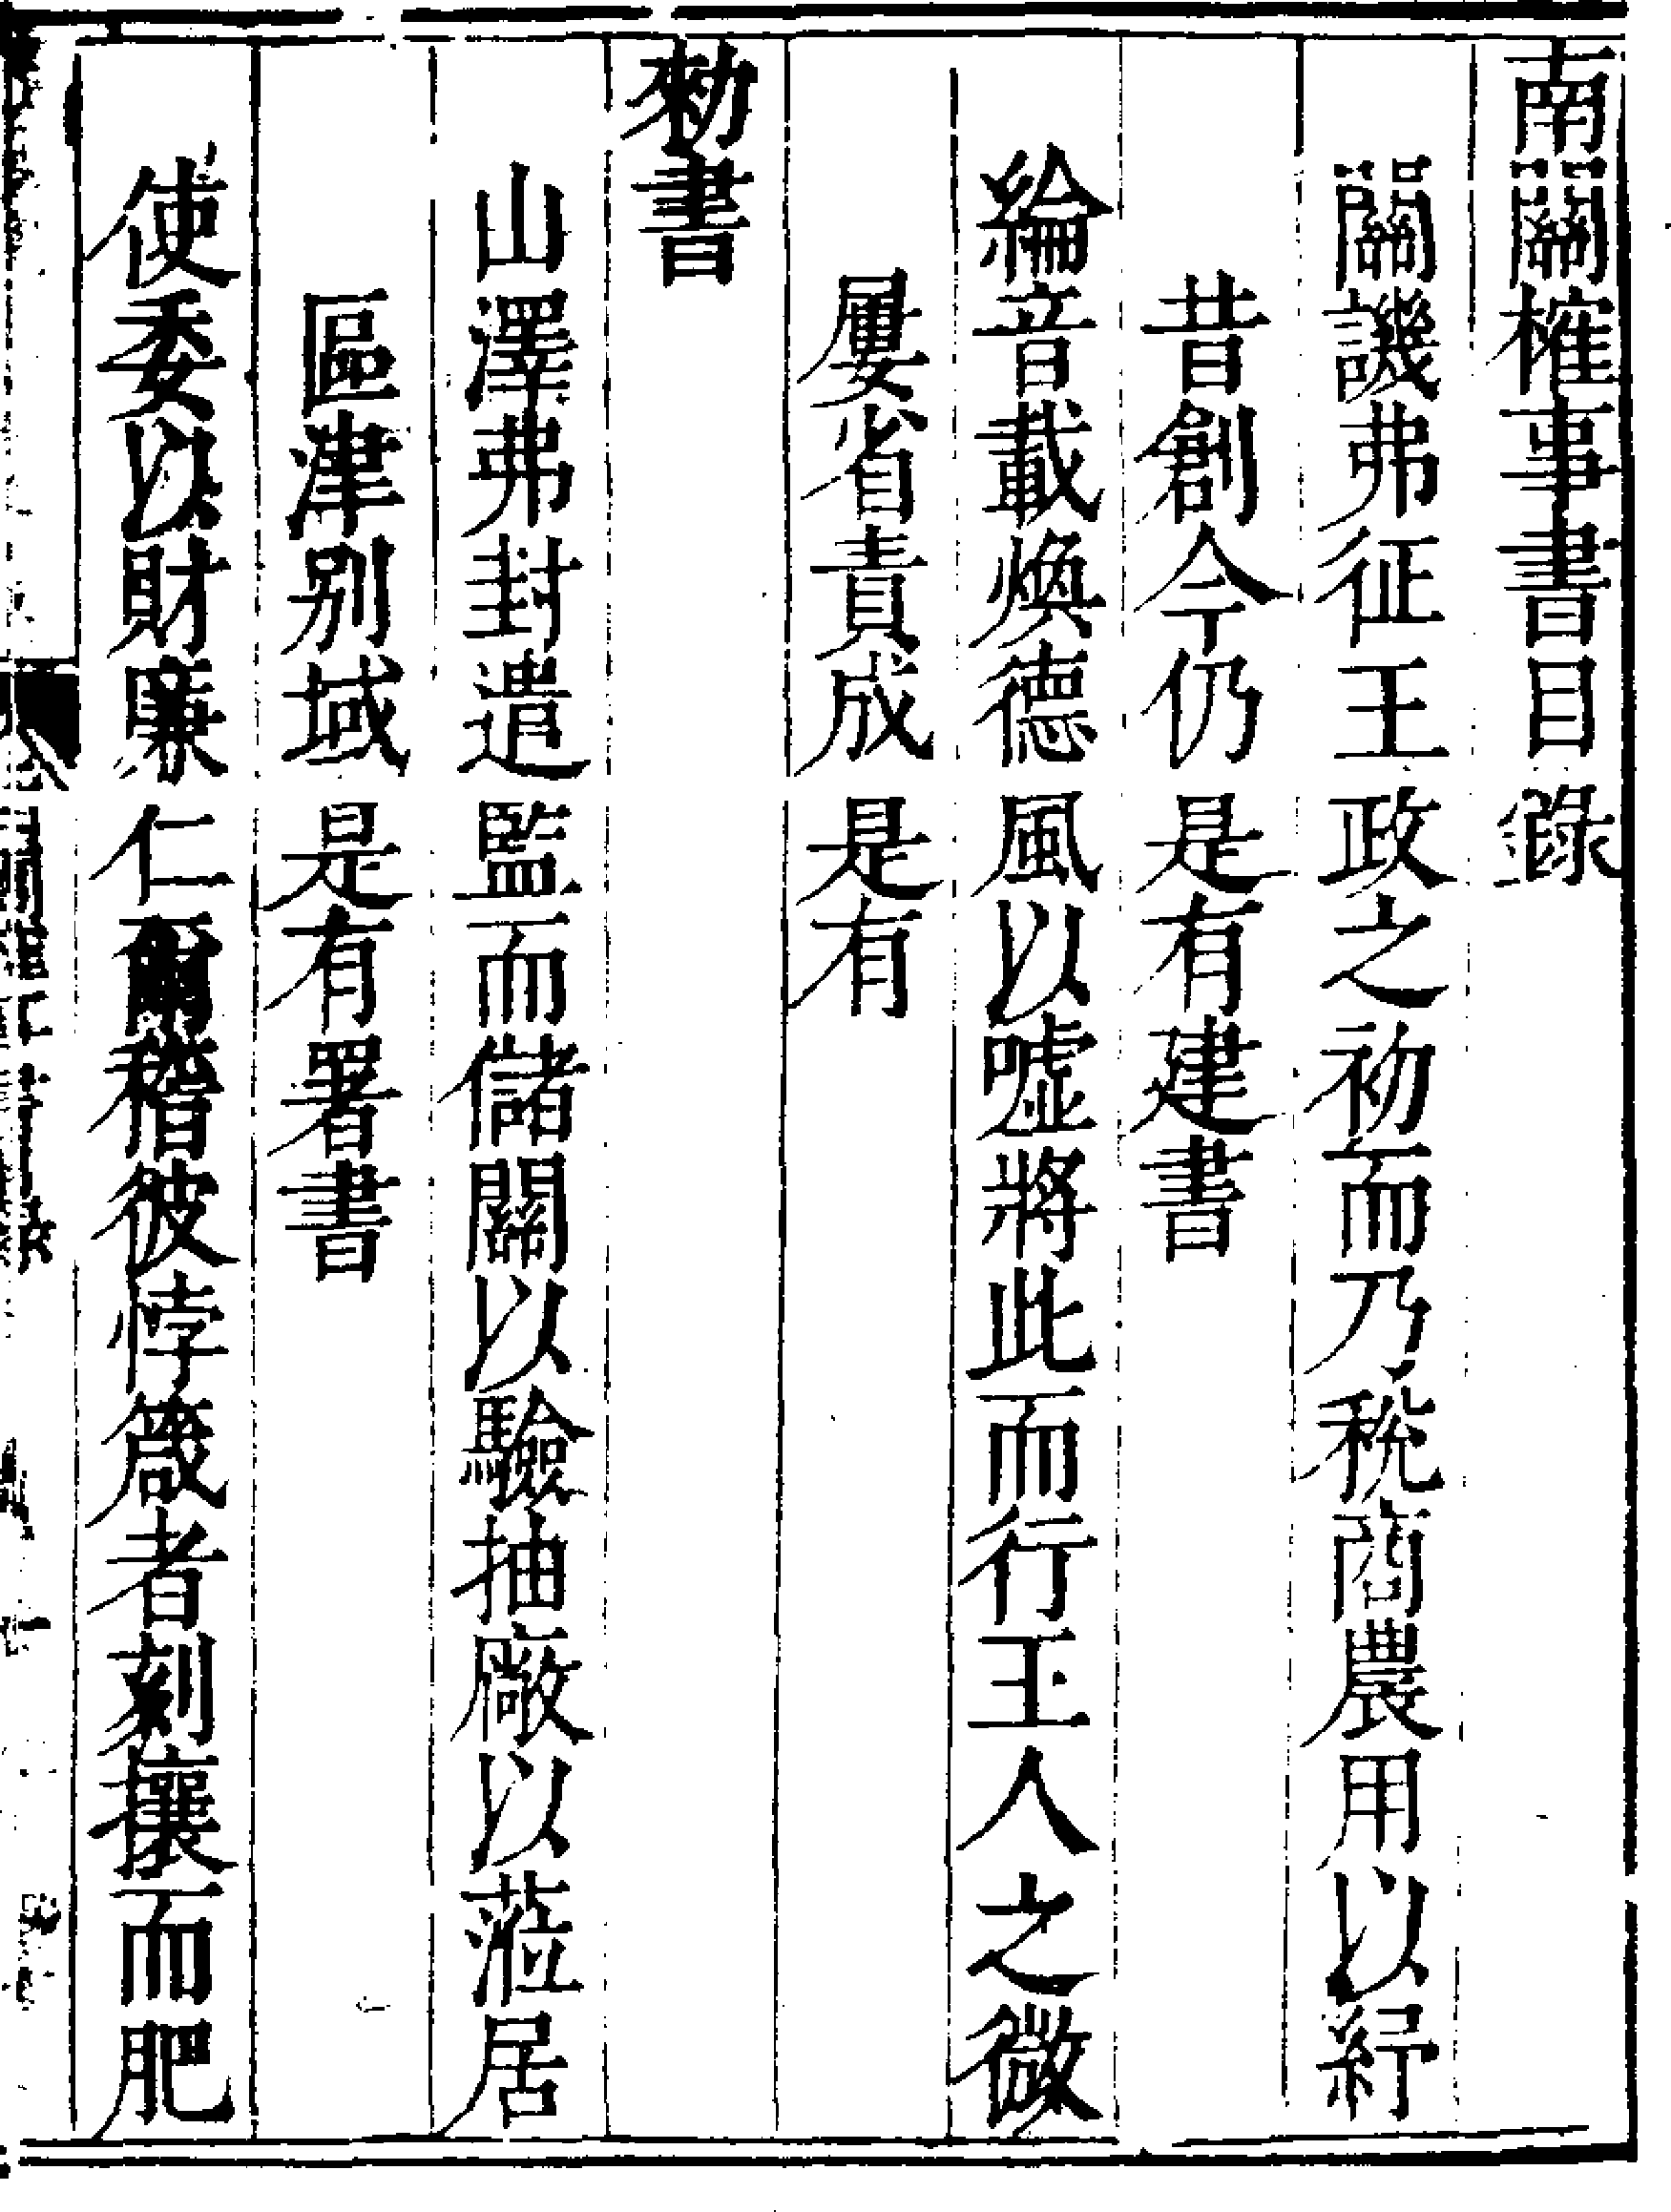 南關榷事書目錄
關譏弗征王政之初而乃稅商農用以紓
昔創今仍是有建書
綸音載煥德風以噓將此而行王人之微
屢省責成是有
勑書
山澤弗封遣監而儲關以驗抽廠以蒞居
區津别域是有署書
使委以財廉仁爾稽彼悖箴者刻攘而肥